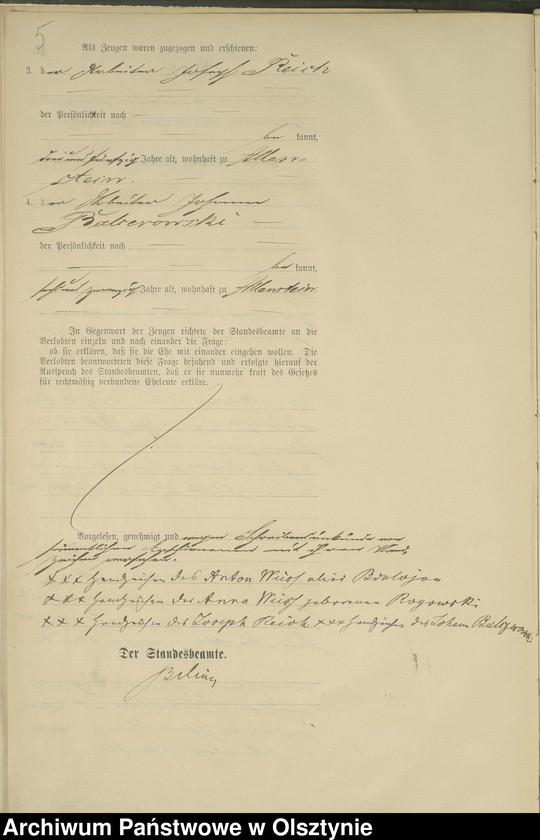 5
Als Zeugen waren zugezogen und erschienen:
3. der Arbeiter Joseph Reich
der Persönlichkeit nach
bekannt,
drei und fünfzig Jahre alt, wohnhaft zu Allen-
stein.
4. der Arbeiter Johann
Balcerowski
der Persönlichkeit nach
bekannt,
sechs und zwanzig Jahre alt, wohnhaft zu Allenstein.
In Gegenwart der Zeugen richtete der Standesbeamte an die
Verlobten einzeln und nach einander die Frage:
ob sie erklären, daß sie die Ehe mit einander eingehen wollen. Die
Verlobten beantworteten diese Frage bejahend und erfolgte hierauf der
Ausspruch des Standesbeamten, daß er sie nunmehr kraft des Gesetzes
für rechtmäßig verbundene Eheleute erkläre.
Vorgelesen, genehmigt und wegen Schreibensunkunde von
sämmtlichen Erschienenen mit ihren Hand-
zeichen versehen.
+++ Handzeichen des Anton Wuss alias
+++ Handzeichen der Anna Wuss geborenen Rogowski
+++ Handzeichen des Joseph Reich +++ Handzeichen des Johann
Der Standesbeamte.
Archiwum Państwowe w Olsztynie